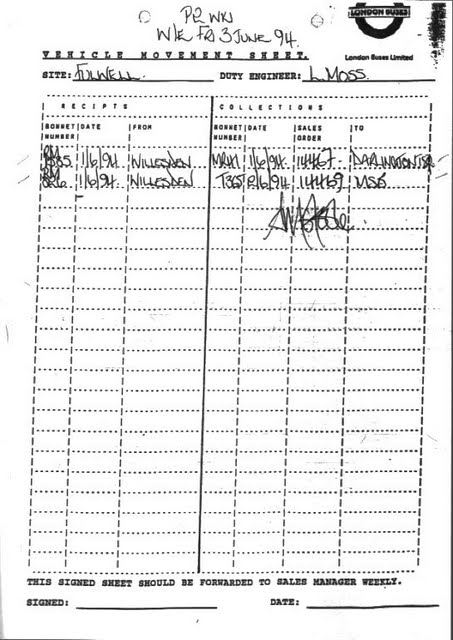 P2 WK1
W/E FRI 3 JUNE 94.
LONDON BUSES
VEHICLE MOVEMENT SHEET.
London Buses Limited
SITE: FULWELL. DUTY ENGINEER: L. MOSS.
RECIPTS COLLECTIONS
BONNET NUMBER DATE FROM BONNET NUMBER DATE SALES ORDER TO
1/6/94 WILLESDEN 1/6/94 14467
1/6/94 WILLESDEN 2/6/94 14469 MSB
THIS SIGNED SHEET SHOULD BE FORWARDED TO SALES MANAGER WEEKLY.
SIGNED: DATE: